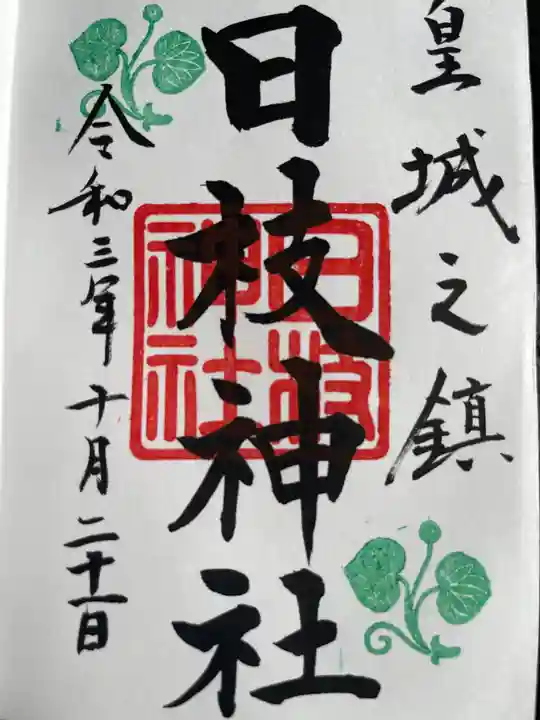 皇城之鎮
日枝神社
日枝神社
令和三年十月二十一日